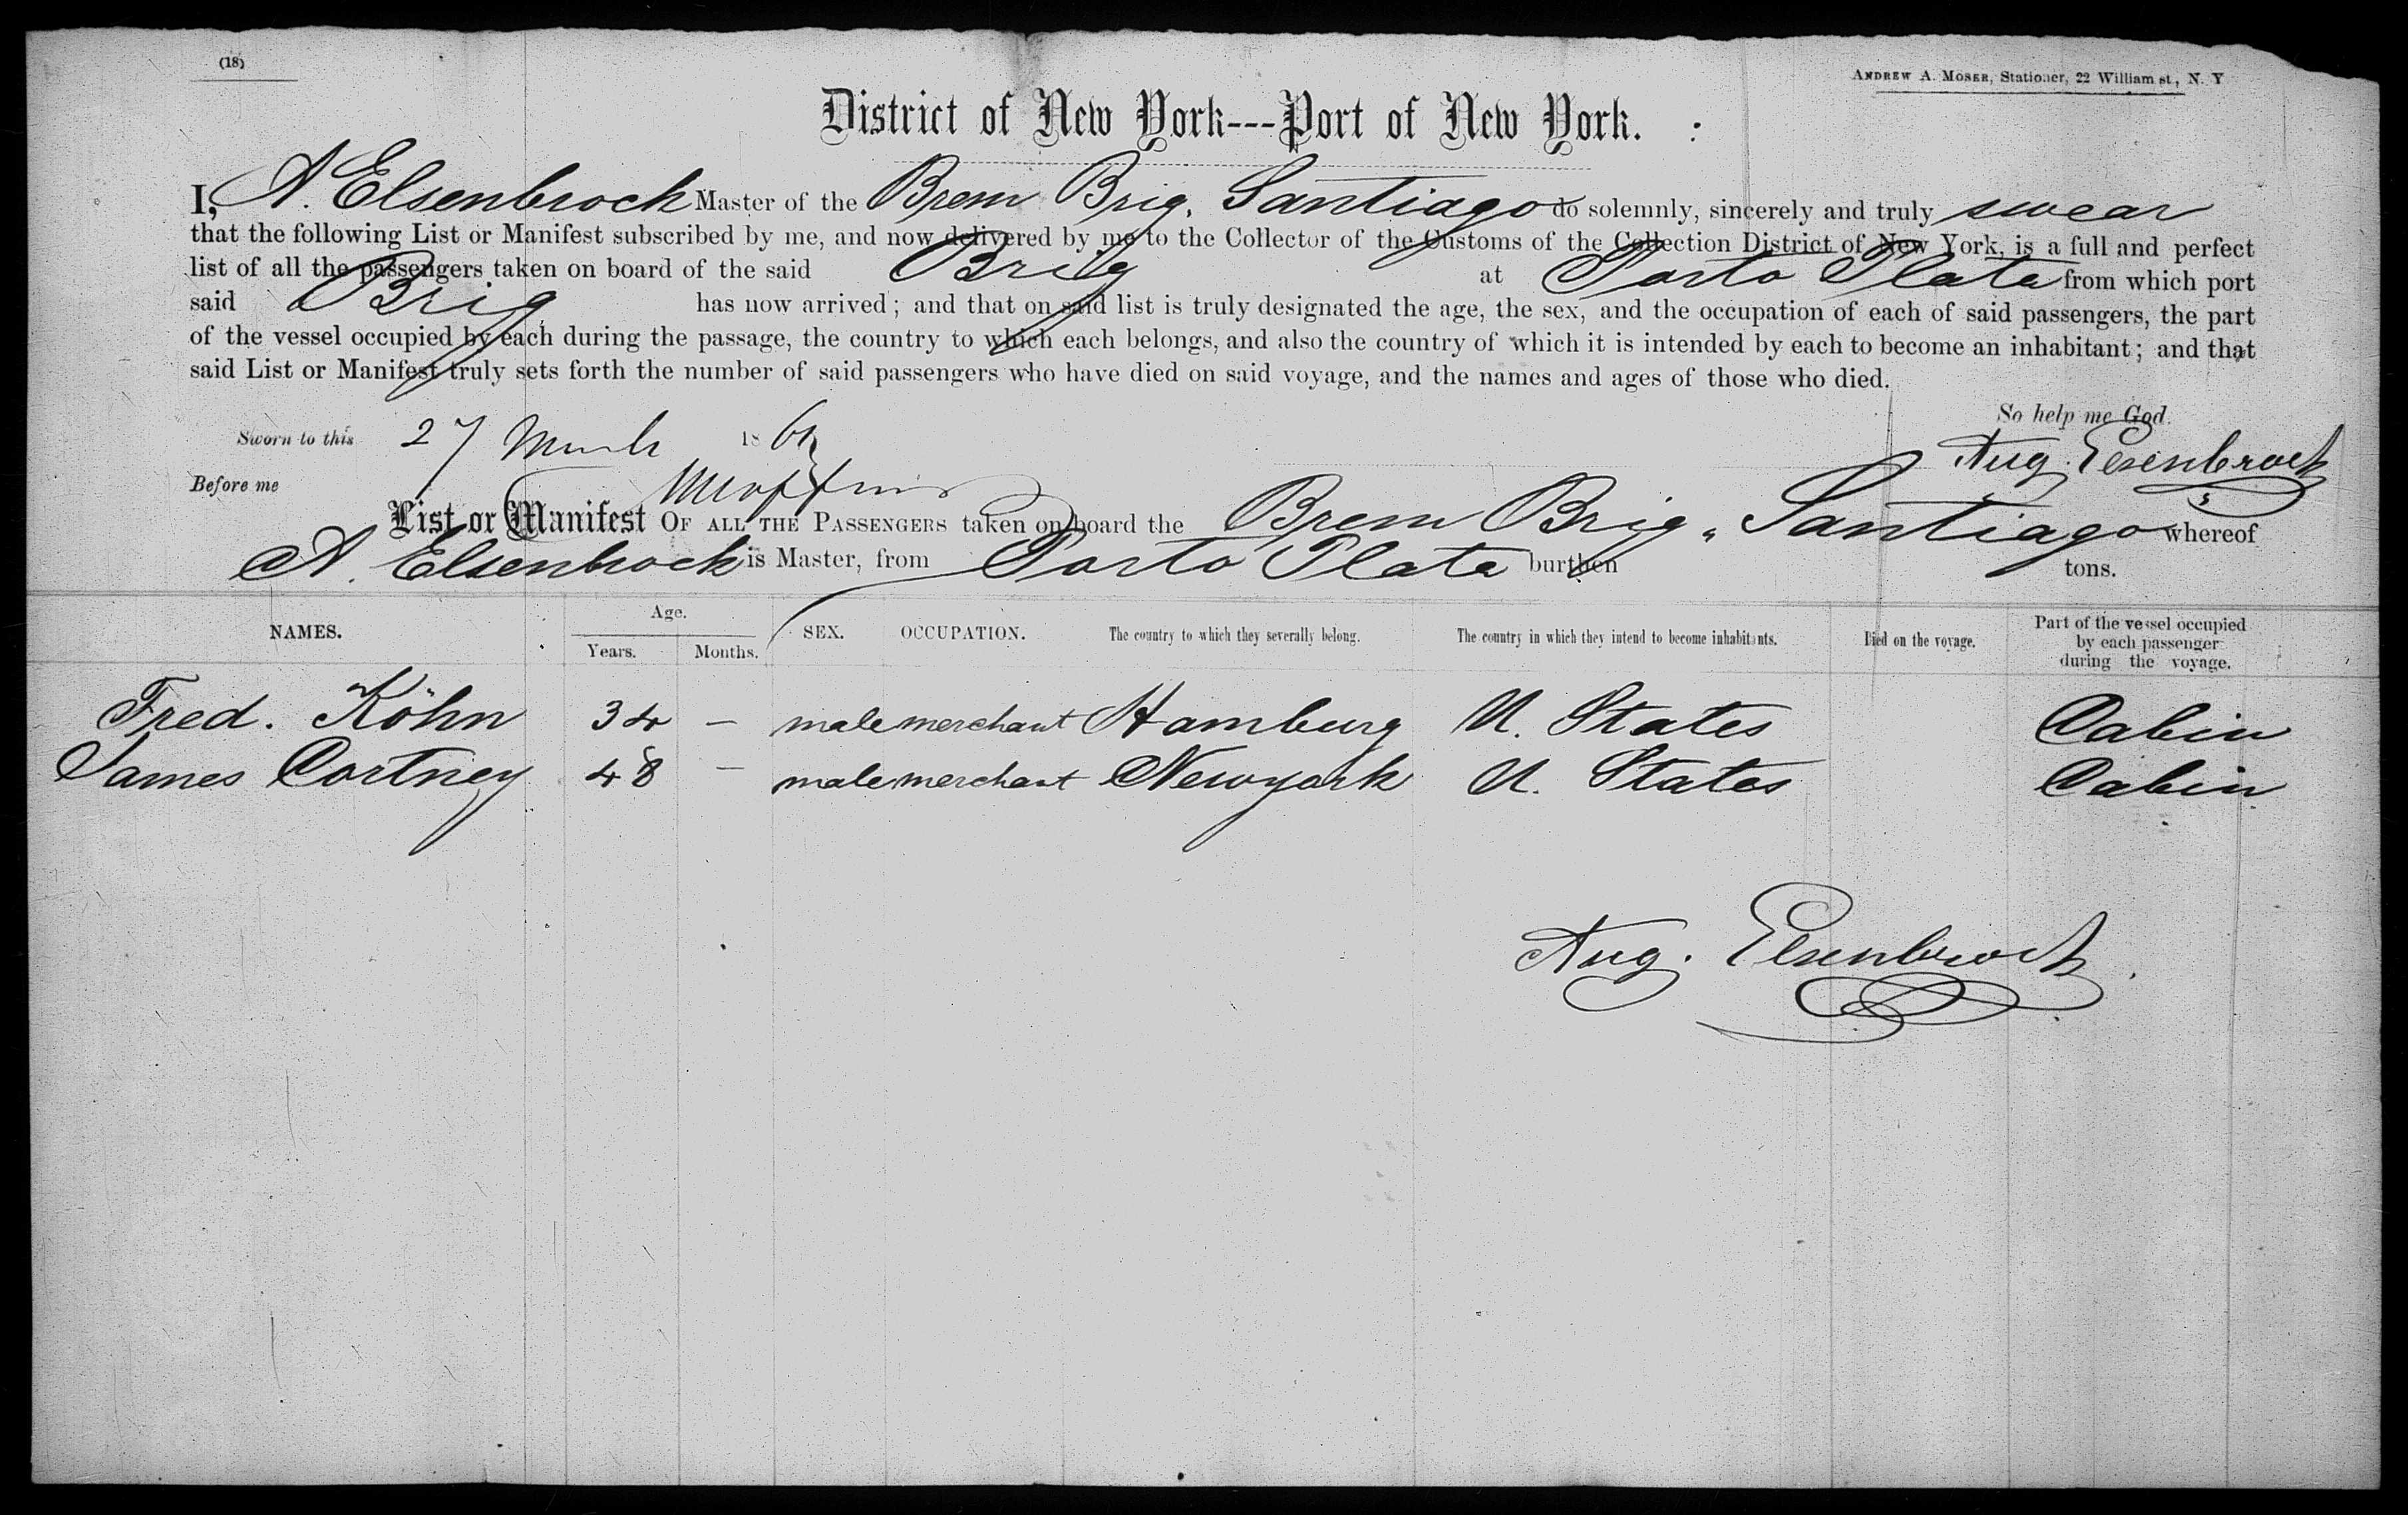 (18)
ANDREW A. MOSER, Stationer, 22 William st., N. Y
District of New York---Port of New York.
I, A. Elsenbrock Master of the Brem Brig. Santiago do solemnly, sincerely and truly swear
that the following List or Manifest subscribed by me, and now delivered by me to the Collector of the Customs of the Collection District of New York, is a full and perfect
list of all the passengers taken on board of the said Brig at Porto Plata from which port
said Brig has now arrived; and that on said list is truly designated the age, the sex, and the occupation of each of said passengers, the part
of the vessel occupied by each during the passage, the country to which each belongs, and also the country of which it is intended by each to become an inhabitant; and that
said List or Manifest truly sets forth the number of said passengers who have died on said voyage, and the names and ages of those who died.
So help me God.
Sworn to this 27 March 18
Aug. Elsenbrock
Before me
List or Manifest OF ALL THE PASSENGERS taken on board the Brem Brig „ Santiago whereof
A. Elsenbrock is Master, from Porto Plata burthen tons.
NAMES. Age. Years. Months. SEX. OCCUPATION. The country to which they severally belong. The country in which they intend to become inhabitants. Died on the voyage. Part of the vessel occupied by each passenger during the voyage.
Fred. Köhn 34 — male merchant Hamburg U. States Cabin
James Cortney 48 — male merchant Newyork U. States Cabin
Aug. Elsenbrock